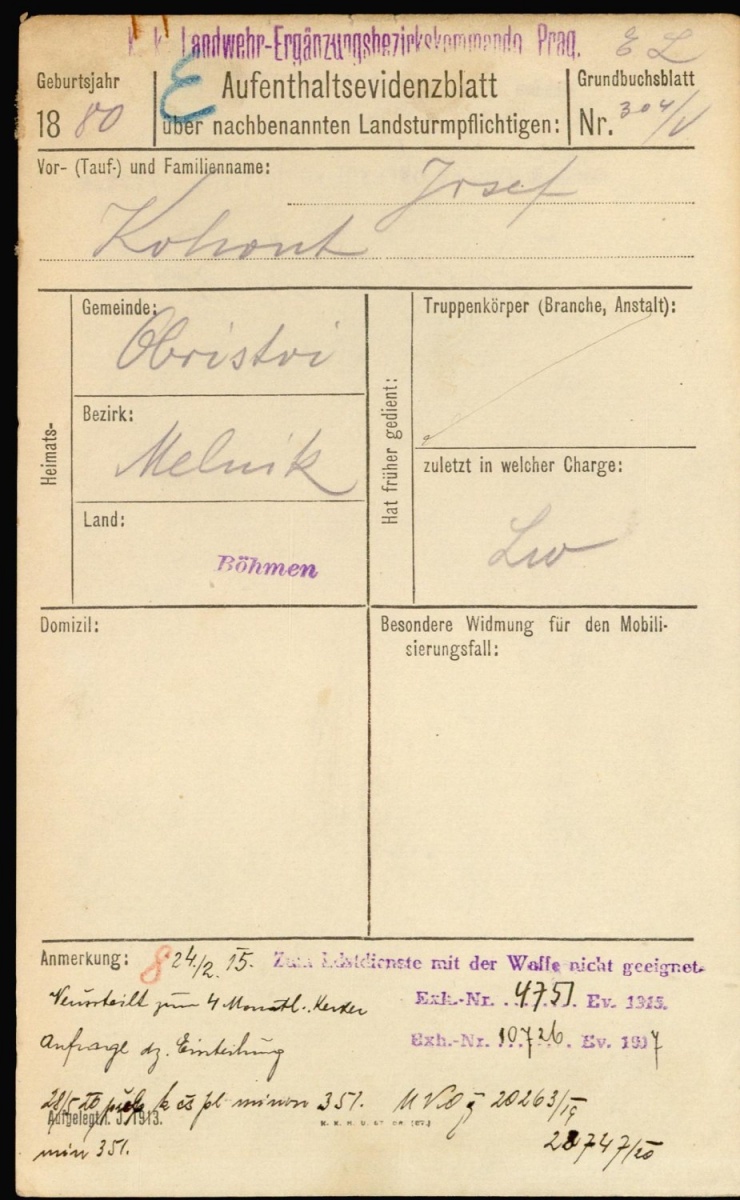 K. k. Landwehr-Ergänzungsbezirkskommando Prag.
E L
Geburtsjahr
1880
E
Aufenthaltsevidenzblatt
über nachbenannten Landsturmpflichtigen:
Grundbuchsblatt
Nr. 304/V
Vor- (Tauf-) und Familienname:
Josef
Kohout
Heimats-
Gemeinde:
Obristvi
Bezirk:
Melnik
Land:
Böhmen
Hat früher gedient:
Truppenkörper (Branche, Anstalt):
zuletzt in welcher Charge:
Lw
Domizil:
Besondere Widmung für den Mobili-
sierungsfall:
Anmerkung: 8 24./2. 15. Zum Lstdienste mit der Waffe nicht geeignet.
Verurteilt zum 4 Monatl. Kerker
Exh.-Nr. 4751. Ev. 1915.
Anfrage dz. Einteilung
Exh.-Nr. 10726. Ev. 1917
28/5 20 pl 351. 20263/19
Aufgelegt i. J. 1913.
28747/20
min 351.